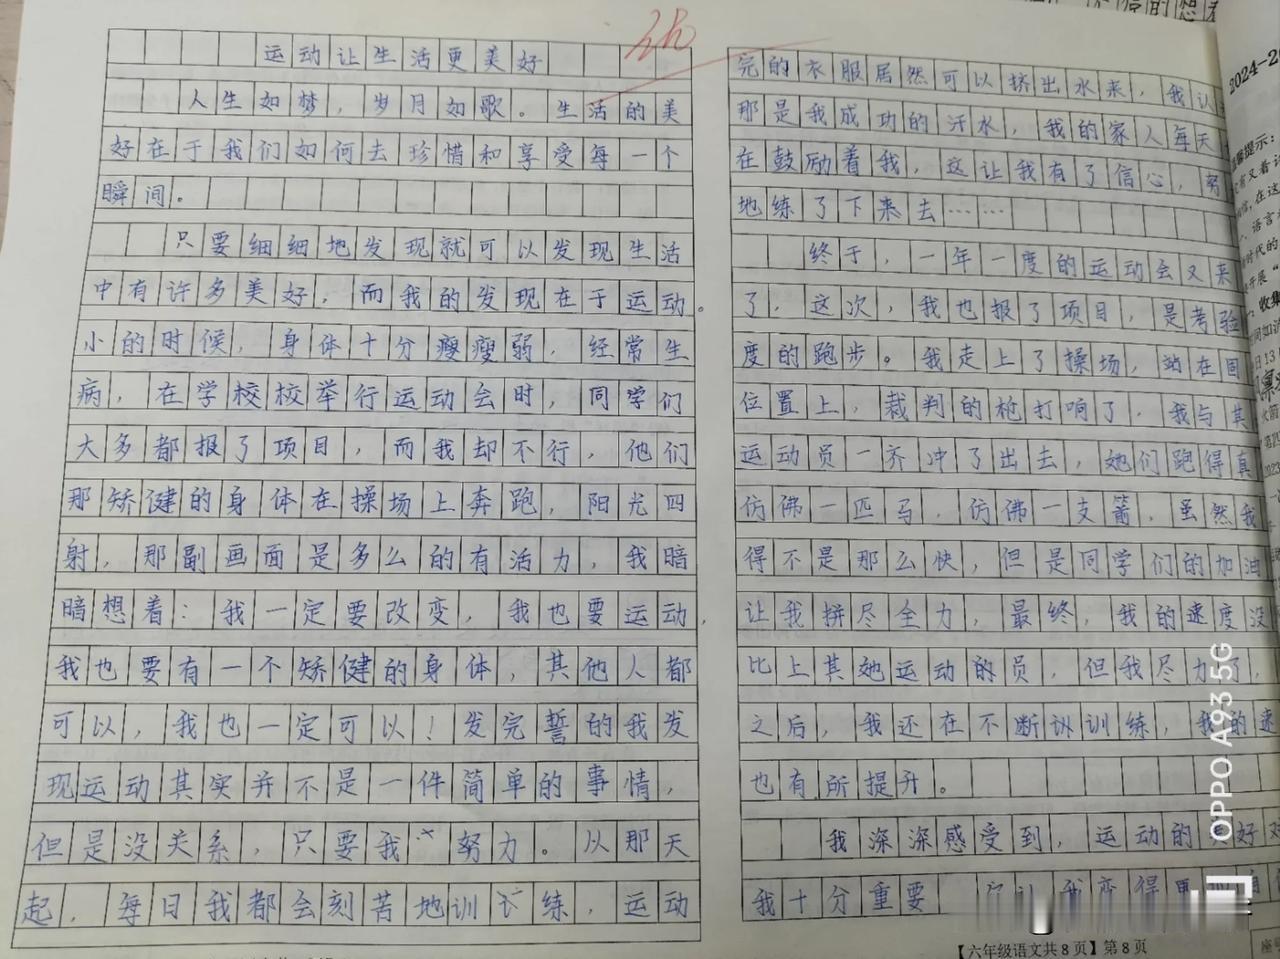 运动让生活更美好
人生如梦，岁月如歌。生活的美
好在于我们如何去珍惜和享受每一个
瞬间。
只要细细地发现就可以发现生活
中有许多美好，而我的发现在于运动。
小的时候，身体十分瘦瘦弱，经常生
病，在学校校举行运动会时，同学们
大多都报了项目，而我却不行，他们
那矫健的身体在操场上奔跑，阳光四
射，那副画面是多么的有活力，我暗
暗想着：我一定要改变，我也要运动，
我也要有一个矫健的身体，其他人都
可以，我也一定可以！发完誓的我发
现运动其实并不是一件简单的事情，
但是没关系，只要我努力。从那天
起，每日我都会刻苦地训练，运动
完的衣服居然可以挤出水来，我认
那是我成功的汗水，我的家人每天
在鼓励着我，这让我有了信心，努
地练了下来去……
终于，一年一度的运动会又来
了，这次，我也报了项目，是考验
度的跑步。我走上了操场，站在
位置上，裁判的枪打响了，我与其
运动员一齐冲了出去，她们跑得真
仿佛一匹马，仿佛一支箭，虽然我
得不是那么快，但是同学们的加油
让我拼尽全力，最终，我的速度没
比上其她运动的员，但我尽力了，
之后，我还在不断训训练，我的速
也有所提升。
我深深感受到，运动的好
我十分重要 变得
【六年级语文共8页】第8页
2024-2
提示：
语言
时代的
开展“
收集
日13
火箭
座
OPPO A93 5G